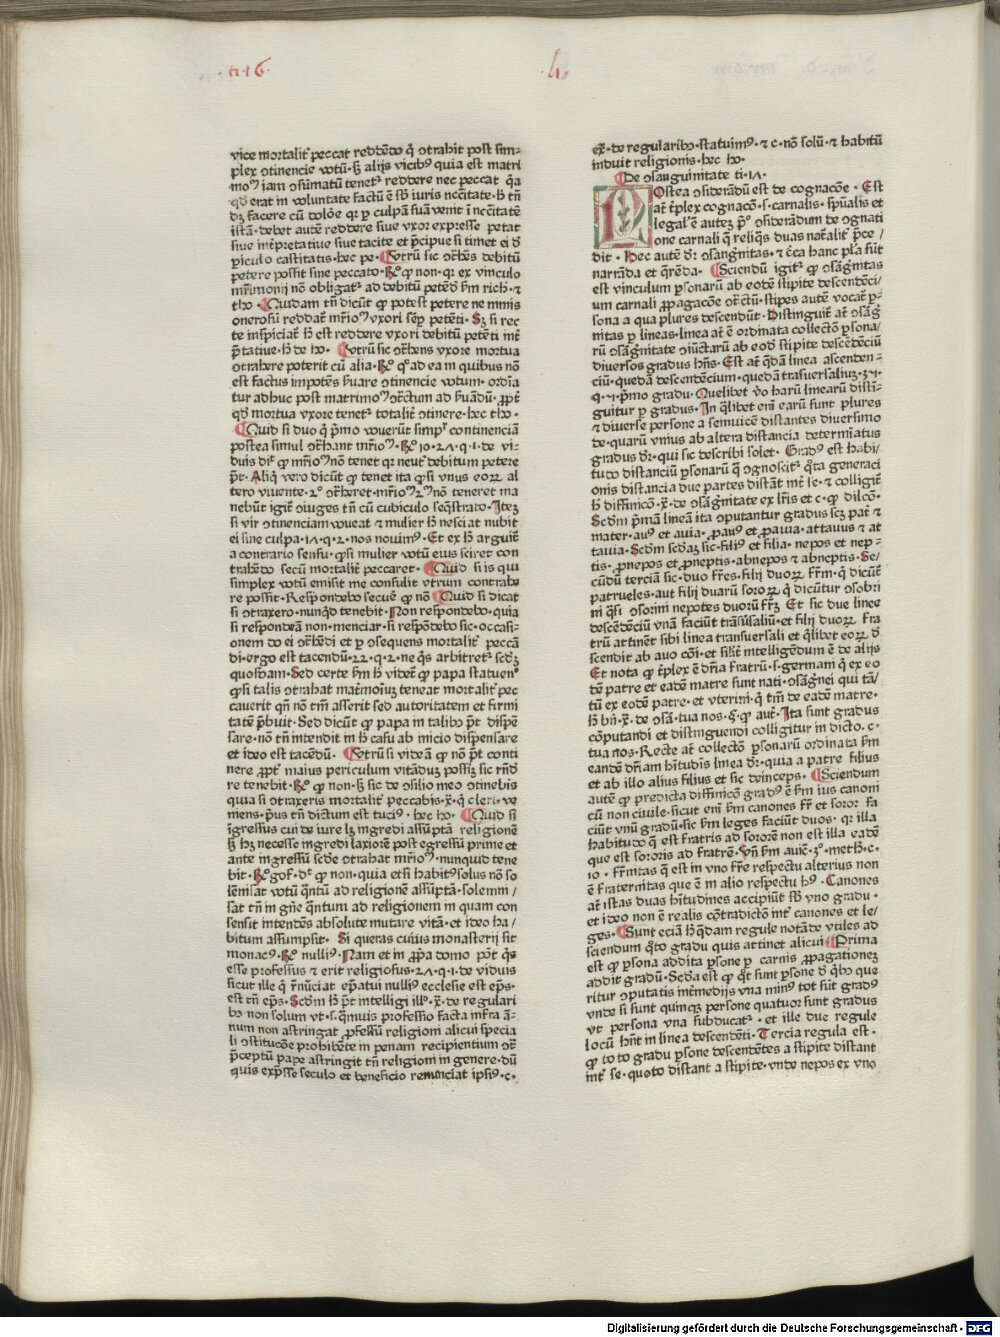 ti·16·
·h·
vice mortalit̃ peccat reddẽdo q̃ ↄtrahit post sim⸗
plex ↄtinencie votũ· ß alijs vicibꝰ quia est matri
moꝰ iam ↄsũmatũ tenetᷣ reddere nec peccat q̃a
qđ erat in voluntate factũ ẽ sß iuris ncc̃itate· ħ tñ
dꝫ facere cũ dolõe qꝛ ꝑ culpã suã venit ĩ nc̃citatẽ
istã· debet autẽ reddere siue vxor expresse petat
siue interpretatiue siue tacite et p̃cipue si timet ei đ
periculo castitatis· hec pe· Vtrũ sic ↄtrhẽs debitũ
petere possit sine peccato· Rꝰ ꝙ non· qꝛ ex vinculo
mr̃imonij nõ obligatᷣ ad debitũ petẽdũ ẜm rich· ⁊
tho· Quidam tñ dicũt ꝙ potest petere ne nimis
onerosũ reddat̃ mr̃ioᷠ vxori semꝑ petẽti· Sꝫ si rec
te inspiciat̃ ħ est reddere vxori debitũ petẽti int̃
p̃tatiue· ħ de ho· Vtrũ sic ↄtrhens vxore mortua
ↄtrahere poterit cũ alia· Rꝰ qꝰ ad ea in quibus nõ
est factus impotẽs ẜuare ↄtinencie votum· ordĩa
tur adhuc post matrimoꝰ ↄtrctum ad ẜuãdũ· ꝓpt̃
qđ mortua vxore tenetᷣ totalit̃ ↄtinere· hec tho·
Quid si duo q̃ p̃mo vouerũt simpᷣ continenciã
postea simul ↄtrhant mr̃ioꝰ· Rꝰ ꝫo·27·q·1·de vi⸗
duis dicit ꝙ mr̃ioꝰ nõ tenet qꝛ neuter debitum petere
põt· Aliqͥ vero dicũt ꝙ tenet ita ꝙ si vnus eoꝝ al
tero viuente·2°ↄtrheret·mr̃ioꝰ 2ꝰ nõ teneret ma
nebũt igit̃ ↄiuges tñ cũ cubiculo seq̃strato· Iteꝫ
si vir ↄtinenciam voueat ⁊ mulier ħ nesciat nubit
ei sine culpa·27·q·2·nos nouimꝰ· Et ex ħ arguit̃
a contrario sensu· ꝙ si mulier votũ eius sciret con
trahẽdo secũ mortalit̃ peccaret· Quid si is qui
simplex votũ emisit me consulit vtrum contrahe
re possit· Respondebo secure ꝙ nõ Quid si dicat
si ↄtraxero· nunqͥd tenebit· Non respondebo· quia
si respondeã non· menciar· si respõdebo sic· occasi⸗
onem do ei ↄtrhẽdi et ꝑ ↄsequens mortalit̃ peccã
di· ergo est tacendũ·22·q·2·ne qͥs arbitretᷣ scđꝫ
quosdam· Sed certe ẜm ħ videt̃ ꝙ papa statuenˢ
ꝙ si talis ↄtrahat mat̃moniꝫ teneat mortalit̃ pec
cauerit qñ nõ tm̃ asserit sed autoritatem et firmi
tatẽ p̃buit· Sed dicũt ꝙ papa in talibꝰ põt dispẽ
sare· nõ tñ intendit in ħ casu ab inicio dispensare
et ideo est tacẽdũ· Vtrũ si videã ꝙ nõ põt conti
nere ꝓpt̃ maius periculum vitãdũꝫ possiꝫ sic rñđ
re tenebit· Rꝰ ꝙ non· ß sic de ↄsilio meo ↄtinebis
quia si ↄtraxeris mortalit̃ peccabis· x̃· q̃ cleri· ve
mens· p̃us tñ dictum est tuciꝰ· hec ho· Quid si
ĩgressus cui de iure lꝫ ingredi assũptã religionẽ
ß hꝫ necesse ingredi laxiorẽ post egressũ prime et
ante ingressũ scđe ↄtrahat mr̃ioꝰ· nunquid tene
bit· Rꝰ gof· dꝰ ꝙ non· quia etsi habitꝰ solus nõ so
lẽnisat votũ q̃ntũ ad religionẽ assũptã· solemni /
sat tñ in gñe q̃ntum ad religionem in quam con
sensit intendẽs absolute mutare vitã· et ideo ha /
bitum assumpsit· Si queras cuius monasterij sit
monacꝰ· Rꝰ nulliꝰ· Nam et in ꝓpͥa domo põt qͥs
esse professus ⁊ erit religiosus·27·q·1·de viduis
sicut ille q̃ r̃nũciat epatui nulliꝰ ecclesie est ep̃s·
est tñ ep̃s· Scđm ħ põt intelligi illᷣ· x̃· de regulari
bꝰ non solum vt·s·q̃muis professio facta infra ã⸗
num non astringat ꝓfessũ religioni alicui specia
li ↄstitucõe prohibẽte in penam recipientium ↄtᷣ
p̃ceptũ pape astringit tñ religioni in genere· dũ
quis exp̃sse seculo et beneficio renunciat ipsiꝰ·c·
ex̃· de regularibꝰ· statuimꝰ· ⁊ c· nõ solũ· ⁊ habitũ
induit religionis· hec ho·
De ↄsanguinitate ti·17·
POstea ↄsiderãdũ est de cognacõe· Est
at̃ t̃plex cognacõ·s·carnalis· sp̃ualis et
legal' ẽ auteꝫ p̃ꝰ ↄsiderãdum de ↄgnati
one carnali q̃ reliq̃s duas nat̃alit̃ p̃ce /
dit· Hec autẽ đr̃ ↄsanguĩtas· ⁊ c̃ca hanc pl̃a sũt
narrãda et q̃rẽda· Sciendũ igitᷣ ꝙ ↄsãg̃nitas
est vinculum ꝑsonarũ ab eodẽ stipite descendẽci /
um carnali ꝓpagacõe ↄtrctũ· stipes autẽ vocat̃ ꝑ⸗
sona a qua plures descendũt· Distinguit̃ at̃ ↄsãg̃
nitas ꝑ lineas· linea at̃ ẽ ordinata collectõ ꝑsona /
rũ ↄsãg̃nitate ↄiũctarũ ab eođ stipite descẽdẽciũ
diuersos gradus hñs· Est at̃ q̃dã linea ascenden⸗
ciũ· quedã descendẽcium· quedã trãsuersaliuꝫ·35·
q·5·p̃mo gradu· Quelibet ꝟo harũ linearũ disti⸗
guitur ꝑ gradus· In q̃libet eni earũ sunt plures
⁊ diuerse persone a seinuicẽ distantes diuersimo
de· quarũ vnius ab altera distancia determiatus
gradus đr̃· qui sic describi solet· Gradꝰ est habi⸗
tudo distanciũ ꝑsonarũ q̃ ↄgnoscitᷣ q̃ta generaci
onis distancia due partes distãt int̃ se· ⁊ colligit̃
ħ diffinicõ· x̃· de ↄsãg̃nitate ex lr̃is et c· ꝙ dilcõ·
Scđm p̃mã lineã ita ↄputantur gradus scꝫ pat̃ ⁊
mater· auꝰ et auia· ꝓauꝰ et ꝓauia· attauus ⁊ at
tauia· Scđm scđaꝫ sic· filiꝰ et filia· nepos et nep⸗
tis· ꝓnepos et ꝓneptis· abnepos ⁊ abneptis· Se⸗
cũdũ terciã sic· duo fr̃es· filij duoꝝ fr̃m· q̃ dicũt̃
patrueles· aut filij duarũ soroꝝ q̃ dicũtur ↄsobri
ni q̃si ↄsorini nepotes duorũ fr̃ꝫ Et sic due linee
descẽdẽciũ vnã faciũt trãsũsaliũ· et filij duoꝝ fra
trũ attinẽt sibi linea transuersali et q̃libet eoꝝ đ
scendit ab auo cõi· et silit̃ intelligẽdum ẽ de alijs
Et nota ꝙ t̃plex ẽ dr̃ia fratrũ·s·germani q̃ ex eo
dẽ patre et eadẽ matre sunt nati· ↄsãg̃nei qui tã /
tũ ex eodẽ patre· et vterini· q̃ tm̃ de eadẽ matre·
ħ bñ· x̃· de ↄsã· tua nos· §· ꝙ aut̃· Ita sunt gradus
cõputandi et distinguendi colligitur in dicto· c·
tua nos· Recte at̃ collectõ ꝑsonarũ ordinata ẜm
eandẽ dr̃iam hĩtudĩs linea đr̃· quia a patre filius
et ab illo alius filius et sic deinceps· Sciendum
autẽ ꝙ predicta diffinicõ gradꝰ ẽ ẜm ius canoni
cũ non ciuile· sicut eni ẜm canones fr̃ et soror fa
ciũt vnũ gradũ· sic ẜm leges faciũt duos· qꝛ illa
habitudo que est fratris ad sororẽ non est illa eadẽ
que est sororis ad fratrẽ· Vñ ẜm auic̃·3°·meth·c·
10· fr̃nitas q̃ est in vno fr̃re respectu alterius non
ẽ fraternitas que ẽ in alio respectu hꝰ· Canones
at̃ istas duas hĩtudines accipiũt sß vno gradu·
et ideo non ẽ realis cõtradictõ int̃ canones et le /
ges· Sunt eciã ħ q̃dam regule notãde vtiles ad
sciendum q̃to gradu quis attinet alicui Prima
est ꝙ ꝑsona addita ꝑsone ꝑ carnis ꝓpagationeꝫ
addit gradũ· Scđa est ꝙ q̃t sunt ꝑsone đ q̃bꝰ que
ritur ↄputatis int̃medijs vna minꝰ tot sũt gradꝰ
vnde si sunt quinqꝫ persone quatuor sunt gradus
vt persona vna subducatᷣ· et ille due regule
locũ hñt in linea descendẽti· Tercia regula est·
ꝙ to to gradu ꝑsone descendẽtes a stipite distant
int̃ se· quoto distant a stipite· vnde nepos ex vno
Digitalisierung gefördert durch die Deutsche Forschungsgemeinschaft - DFG